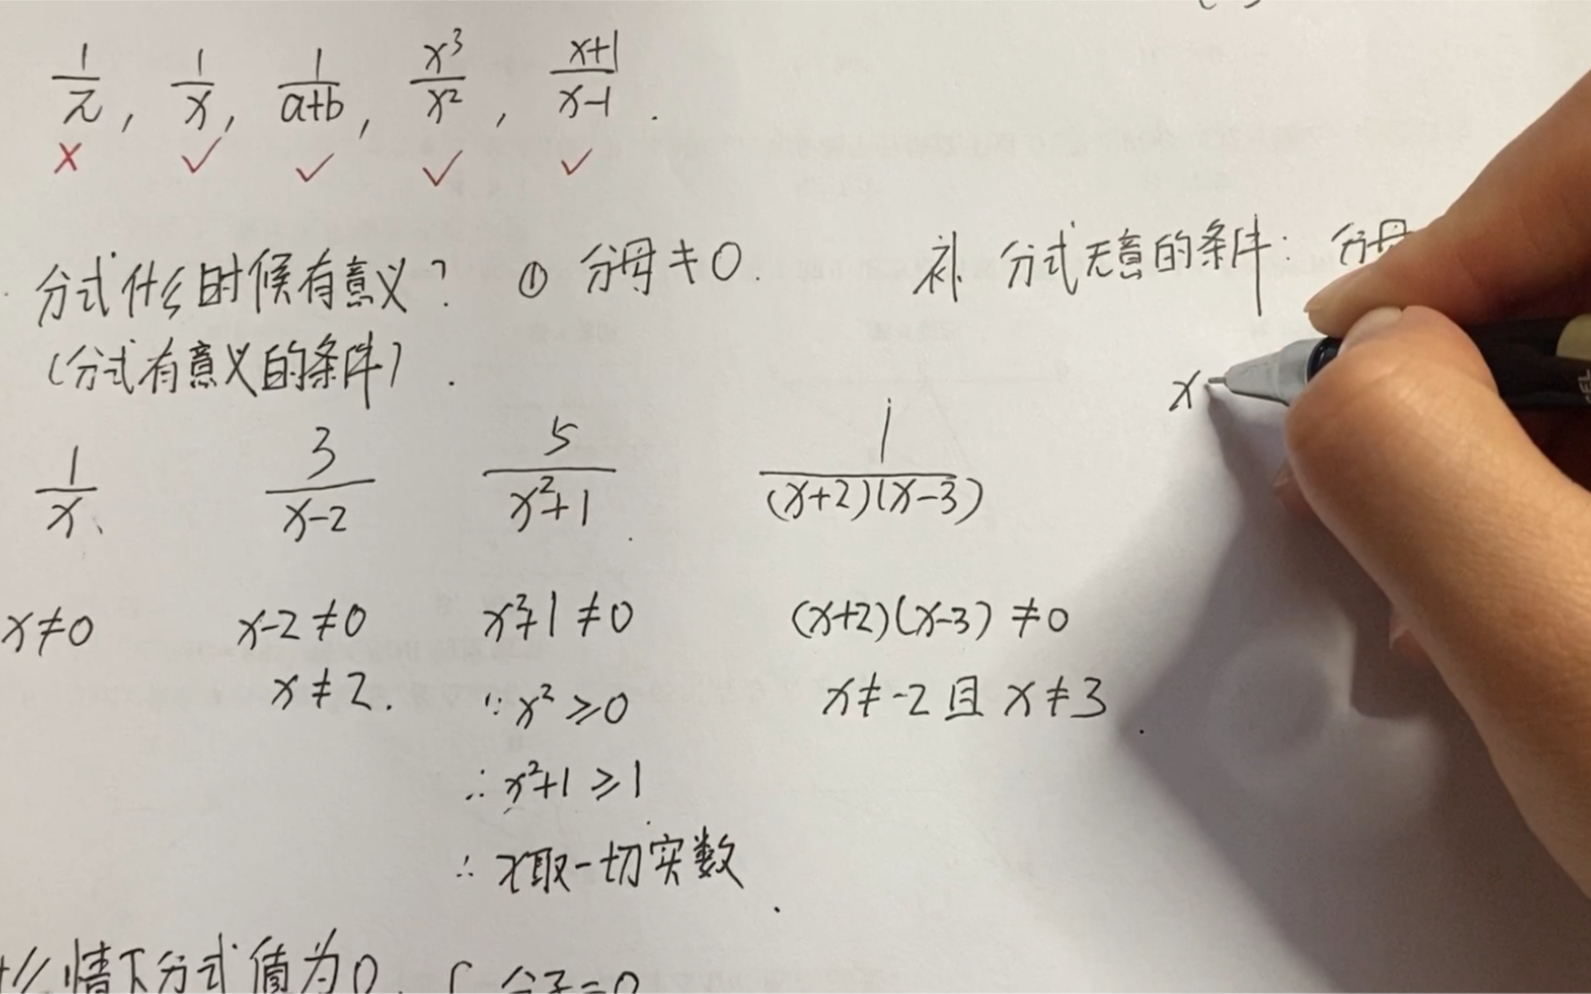 1/π, 1/x, 1/(a+b), x³/x², (x+1)/(x-1).
× ✓ ✓ ✓ ✓
分式什么时候有意义? ① 分母≠0.
补 分式无意的条件: 分母
(分式有意义的条件).
x
1/x、 3/(x-2) 5/(x²+1). 1/((x+2)(x-3))
x≠0 x-2≠0 x²+1≠0 (x+2)(x-3)≠0
x≠2. ∵x²≥0 x≠-2且x≠3.
∴x²+1≥1
∴x取一切实数.
什么情下分式值为0. { 分子=0